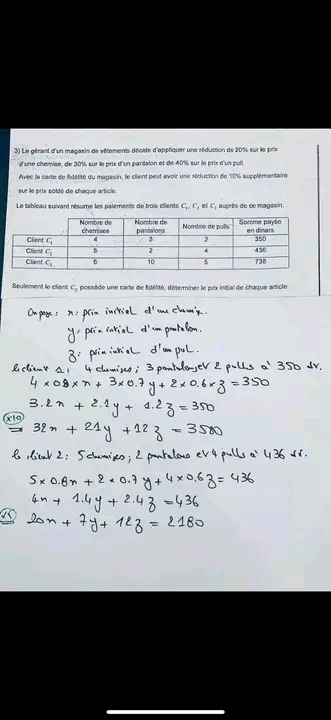 3) Le gérant d'un magasin de vêtements décide d'appliquer une réduction de 20% sur le prix
d'une chemise, de 30% sur le prix d'un pantalon et de 40% sur le prix d'un pull.
Avec la carte de fidélité du magasin, le client peut avoir une réduction de 10% supplémentaire
sur le prix soldé de chaque article.
Le tableau suivant résume les paiements de trois clients C₁, C₂ et C₃ auprès de ce magasin.
Nombre de chemises Nombre de pantalons Nombre de pulls Somme payée en dinars
Client C₁ 4 3 2 350
Client C₂ 5 2 4 436
Client C₃ 6 10 5 738
Seulement le client C₃ possède une carte de fidélité, déterminer le prix initial de chaque article.
On pose : x : prix initial d'une chemise.
y : prix initial d'un pantalon.
z : prix initial d'un pul.
le client 1 : 4 chemises ; 3 pantalons et 2 pulls à 350 dr.
4 × 0.8 × x + 3 × 0.7 y + 2 × 0.6 × z = 350
3.2 x + 2.1 y + 1.2 z = 350
×10 ⇒ 32 x + 21 y + 12 z = 3500
le client 2 : 5 chemises ; 2 pantalons et 4 pulls à 436 dr.
5 × 0.8 x + 2 × 0.7 y + 4 × 0.6 z = 436
4x + 1.4 y + 2.4 z = 436
×5 20 x + 7 y + 12 z = 2180